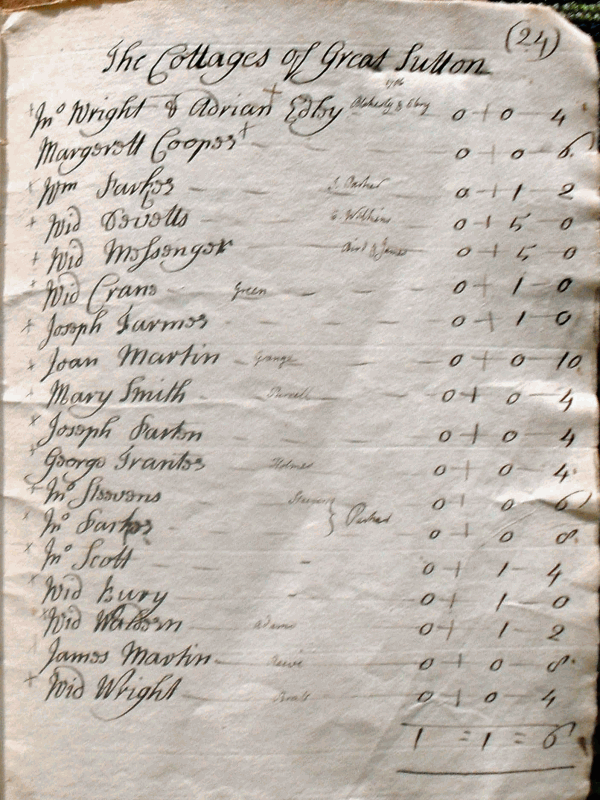 (24)
The Cottages of Great Sutton
1786
+ Jnº Wright & Adrian Edby 0 + 0 - 4
Margerett Cooper + 0 + 0 - 6
x Wm Parkes 0 + 1 - 2
+ Wid 0 + 5 - 0
+ Wid Messenger 0 + 5 - 0
x Wid Crane Green 0 + 1 - 0
x Joseph Farmer 0 + 1 - 0
+ Joan Martin Grange 0 + 0 - 10
Mary Smith Purcell 0 + 0 - 4
x Joseph Parton 0 + 0 - 4
x George Tranter Holmes 0 + 0 - 4
+ Jnº Steevens 0 + 0 - 6
x Jnº Parkes 0 + 0 - 8
x Jnº Scott 0 + 1 - 4
x Wid Bury 0 + 1 - 0
x Wid Adams 0 + 1 - 2
James Martin Reeve 0 + 0 - 8
+ Wid Wright 0 + 0 - 4
1 = 1 = 6